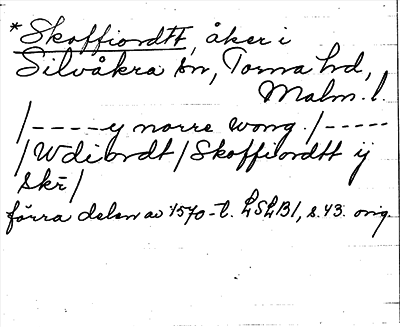 *Skoffiordtt, åker i
Silvåkra sn, Torna hd,
Malm. l.
/----y norre wong. /-----
/Wdi ordt/Skoffiordtt ij
skr̄/
förra delen av 1570-t. LSLB1, s. 43. orig.